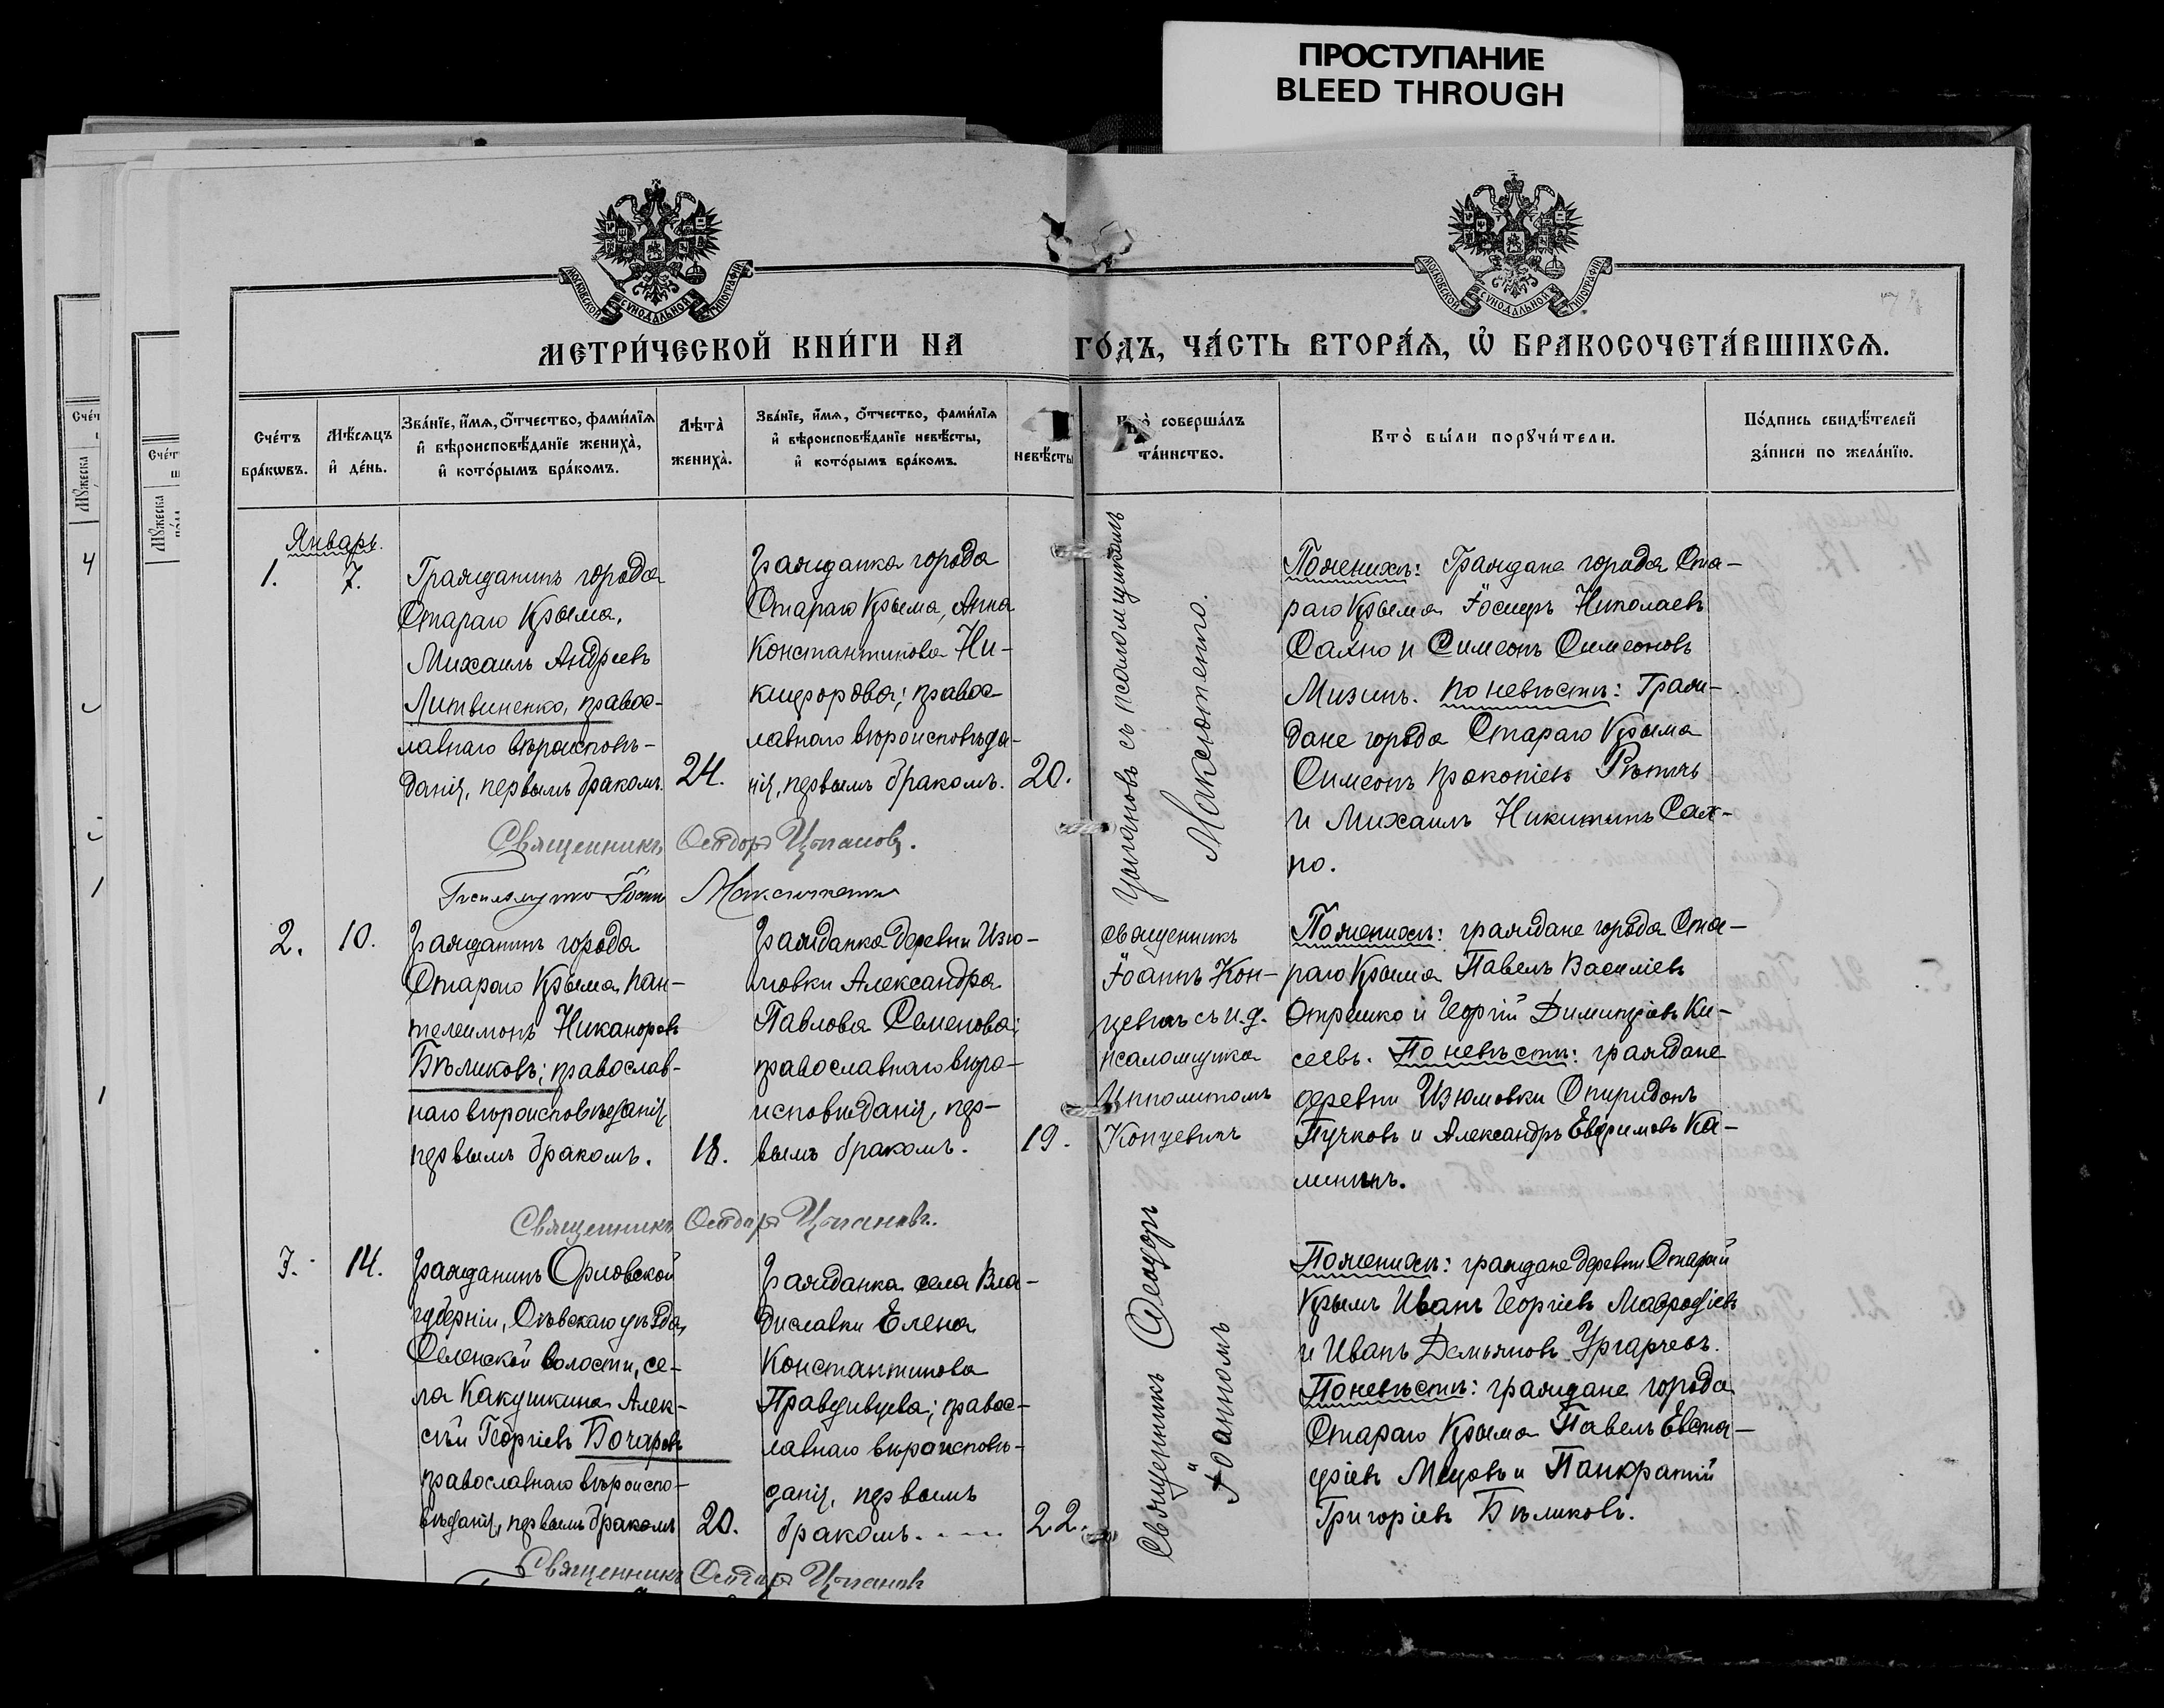 ПРОСТУПАНИЕ
BLEED THROUGH
МОСКОВСКОЙ СѴНОДАЛЬНОЙ ТИПОГРАФІИ
МОСКОВСКОЙ СѴНОДАЛЬНОЙ ТИПОГРАФІИ
МЕТРИ́ЧЕСКОЙ КНИ́ГИ НА
ГО́ДЪ, ЧА́СТЬ ВТОРА́Ѧ, Ѡ҆ БРАКОСОЧЕТА́ВШИХСѦ.
Сче́тъ
бра́кѡвъ.
Мѣ́сѧцъ
и҆ де́нь.
Зва́нїе, и҆́мѧ, ѻ҆́тчество, фами́лїѧ
и҆ вѣроисповѣ́данїе жениха̀,
и҆ кото́рымъ бра́комъ.
Лѣ̑та
жениха̀.
Зва́нїе, и҆́мѧ, ѻ҆́тчество, фами́лїѧ
и҆ вѣроисповѣ́данїе невѣ́сты,
и҆ кото́рымъ бра́комъ.
невѣ́сты
Кто̀ соверша́лъ
та́инство.
Кто̀ бы́ли порꙋчи́тели.
По́дпись свидѣ́телей
за́писи по жела́нїю.
Январь.
1.
7.
Гражданинъ города
Стараго Крыма,
Михаилъ Андреевъ
Литвиненко, правос-
лавнаго вѣроисповѣ-
данія, первымъ бракомъ.
24.
Гражданка города
Стараго Крыма, Анна
Константинова Ни-
кифорова; правос-
лавнаго вѣроисповѣда-
нія, первымъ бракомъ.
20.
съ псаломщикомъ
Максютенко.
По женихѣ: Граждане города Ста-
раго Крыма Іосифъ Николаевъ
Сахно и Симеонъ Симеоновъ
Мизинъ. По невѣстѣ: Граж-
дане города Стараго Крыма
Симеонъ Прокопіевъ
и Михаилъ Никитинъ Сах-
но.
Священникъ Ѳеодоръ Цыпановъ.
Максютенко
2.
10.
Гражданинъ города
Стараго Крыма Пан-
телеимонъ Никаноровъ
Бѣликовъ; православ-
наго вѣроисповѣданія,
первымъ бракомъ.
18.
Гражданка деревни Изю-
мовки Александра
Павлова Семенова;
православнаго вѣро-
исповѣданія, пер-
вымъ бракомъ.
19.
священникъ
Іоаннъ Кон-
цевичъ съ и.д.
псаломщика
Ипполитомъ
Концевичъ
По женихѣ: граждане города Ста-
раго Крыма Павелъ Василіевъ
Отрешко и Георгій Димитріевъ Ки-
сеевъ. По невѣстѣ: граждане
деревни Изюмовки Спиридонъ
Пучковъ и Александръ Евфимовъ Ка-
лининъ.
Священникъ Ѳеодоръ Цыпановъ.
3.
14.
Гражданинъ Орловской
губерніи, Сѣвскаго уѣзда,
волости, се-
ла Какушкина Алек-
сѣй Георгіевъ Бочаровъ
православнаго вѣроиспо-
вѣданія, первымъ бракомъ
20.
Гражданка села Вла-
диславки Елена
Константинова
Правдивцева; правос-
лавнаго вѣроисповѣ-
данія, первымъ
бракомъ.
22.
Священникъ Ѳеодоръ
Іоанномъ
По женихѣ: граждане деревни Старый
Крымъ Иванъ Георгіевъ Мавродіевъ
и Иванъ Демьяновъ Ургарчевъ.
По невѣстѣ: граждане города
Стараго Крыма Павелъ Евста-
фіевъ и Панкратій
Григоріевъ Бѣликовъ.
Священникъ Ѳеодоръ Цыпановъ